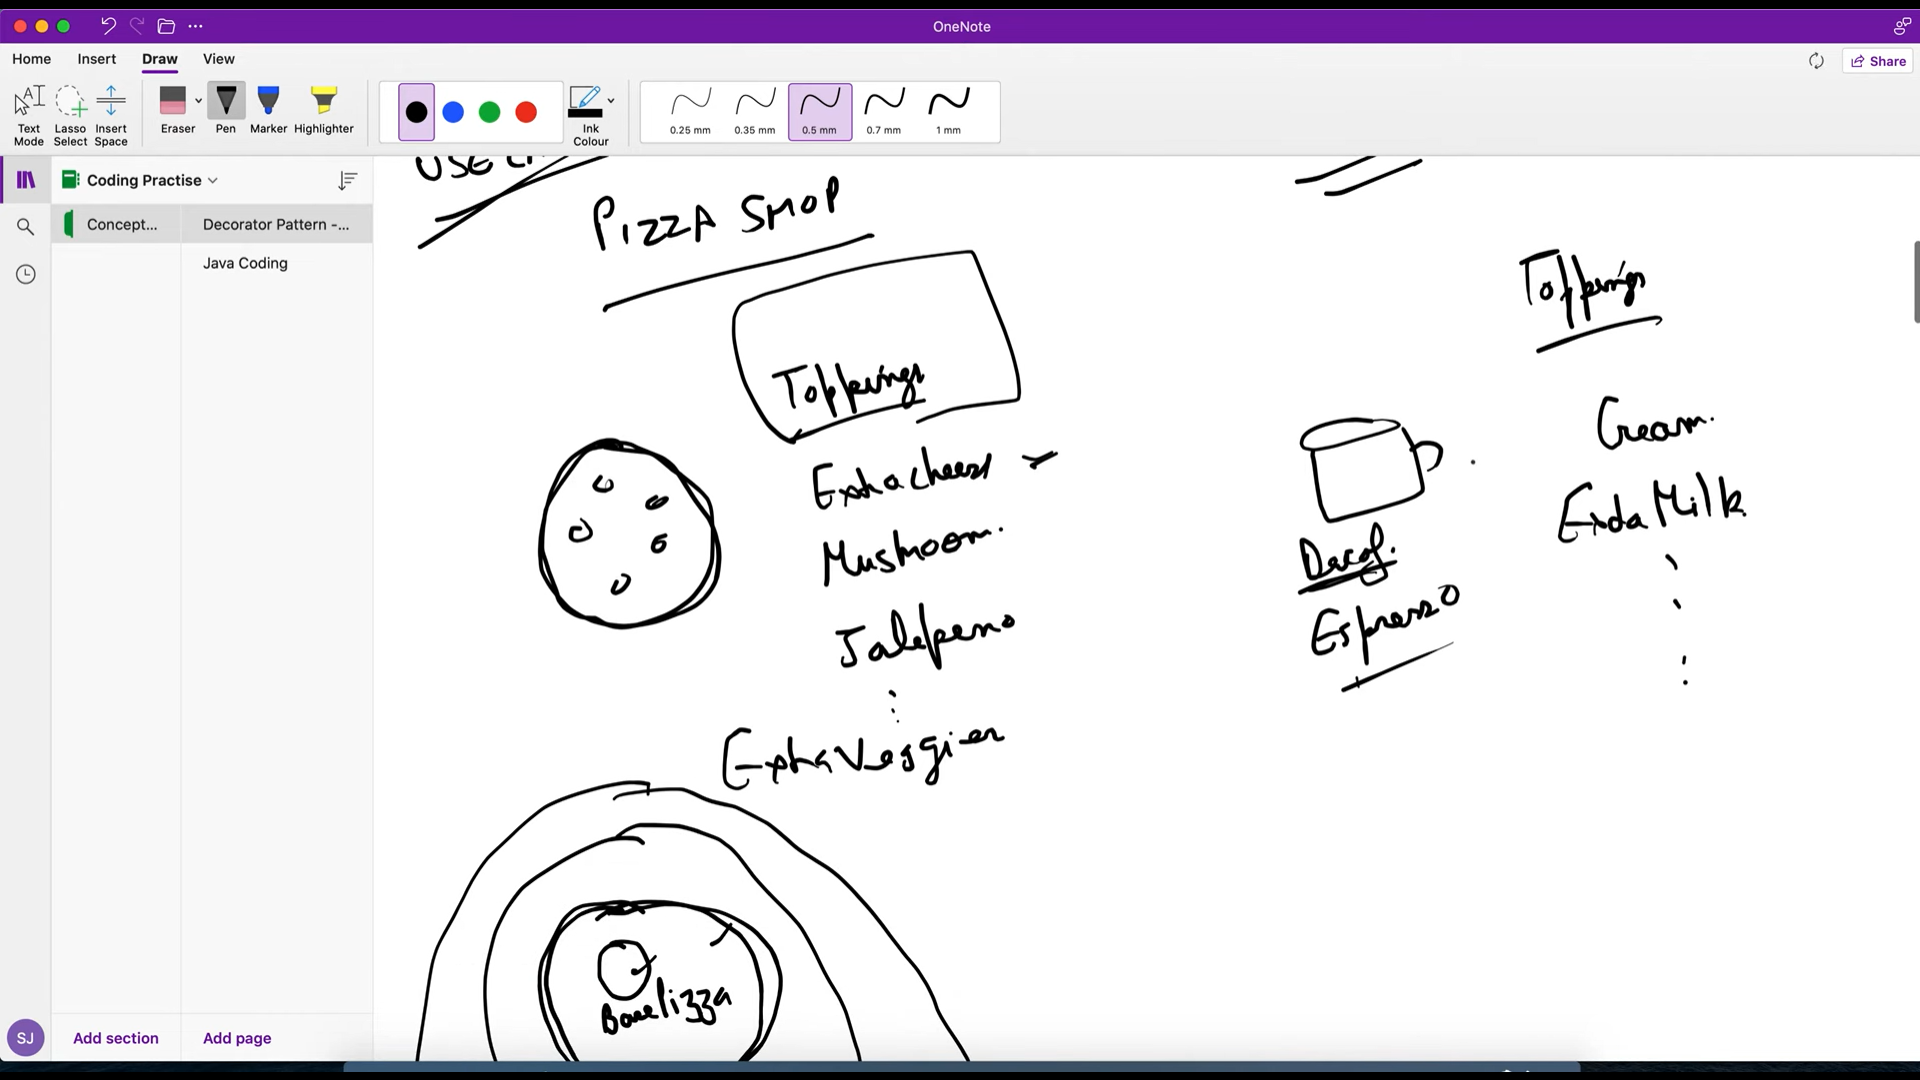 OneNote
Home Insert Draw View
Share
Text Mode
Lasso Select
Insert Space
Eraser
Pen
Marker
Highlighter
Ink Colour
0.25 mm
0.35 mm
0.5 mm
0.7 mm
1 mm
Coding Practise
Concept...
Decorator Pattern -...
Java Coding
SJ
Add section
Add page
USE
PIZZA SHOP
Toppings
Extra cheese
Mushroom.
Jalepeno
Extra Veggies
Base Pizza
Toppings
Cream.
Extra Milk
Decaf.
Espresso